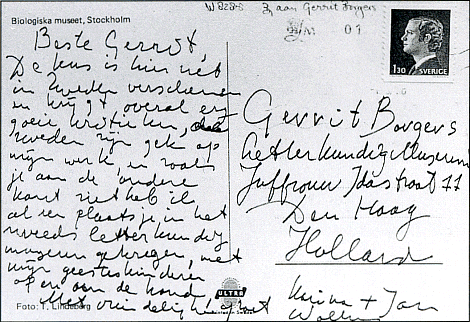 W 828-B 2, aan Gerrit Borgers
01
Biologiska museet, Stockholm
Beste Gerrit,
De kus is hier net
in Zweden verschenen
en krijgt overal erg
goeie kritieken, de
zweden zijn gek op
mijn werk en zoals
je aan de andere
kant ziet heb ik
al een plaatsje in het
zweeds letterkundig
museum gekregen, met
mijn geesteskinderen
op en aan de hand
Met vriendelijke groet
Foto: T. Lindeberg
ULTRA
1.30 SVERIGE
Gerrit Borgers
Letterkundig Museum
Juffrouw Idastraat 11
Den Haag
Holland
Karina + Jan
Wolkers